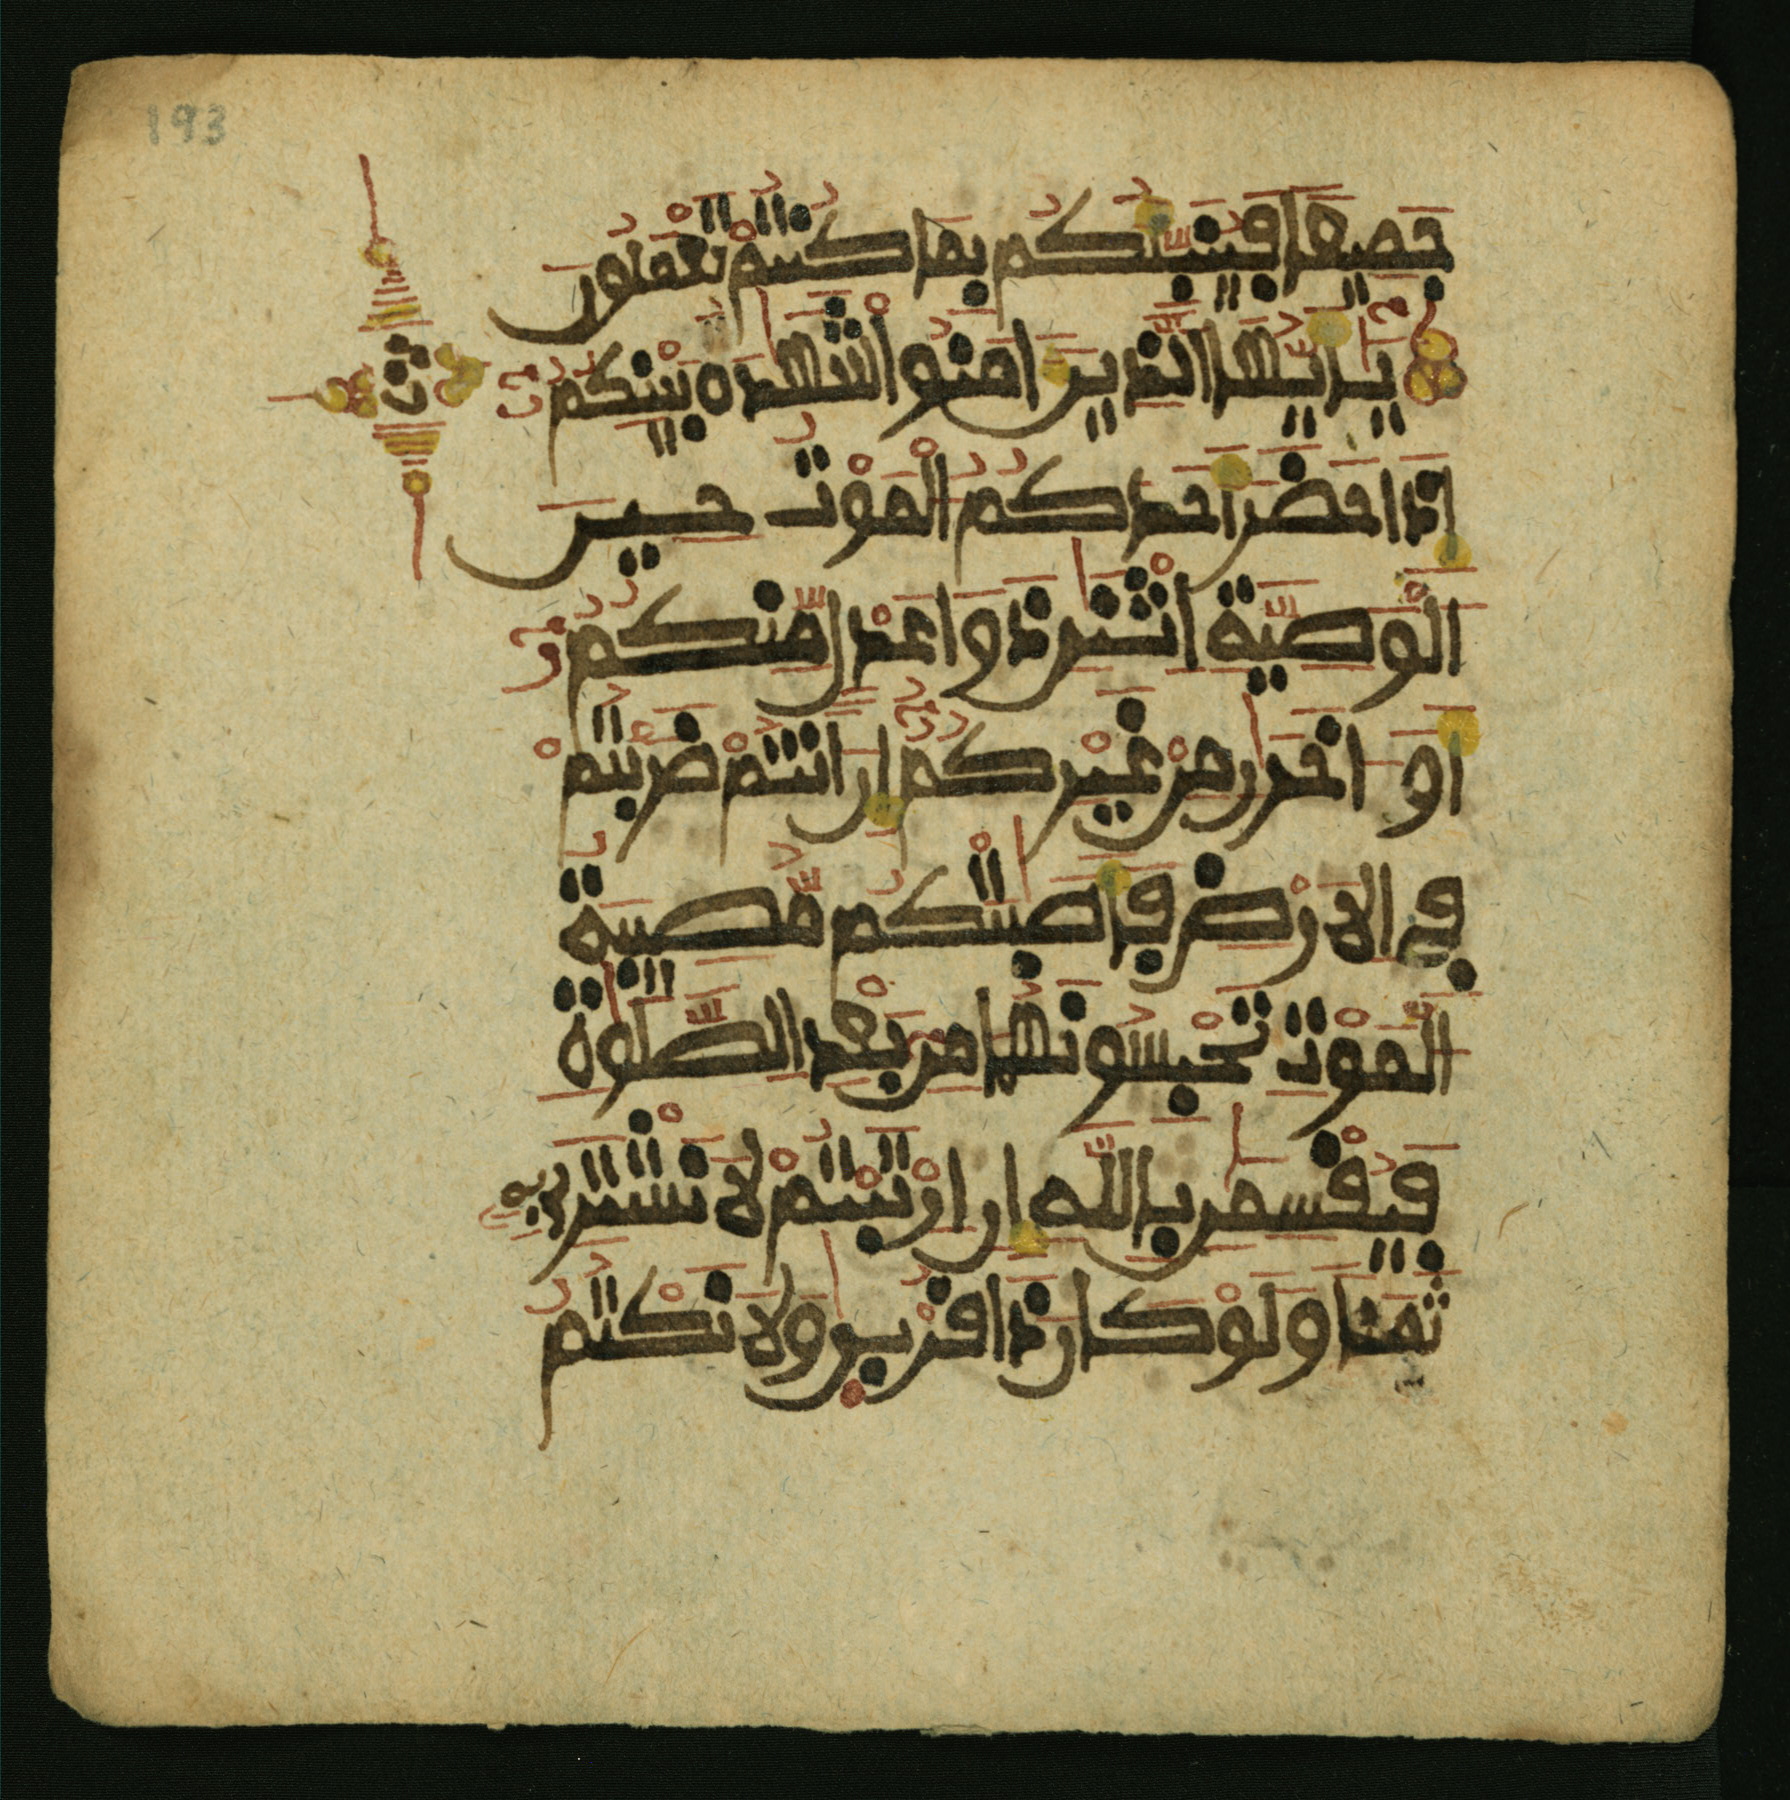 193
جميعا فينبئكم بما كنتم تعملون
يايها الذين امنوا شهدة بينكم
ثمن
اذا حضر احدكم الموت حين
الوصية اثنن ذوا عدل منكم
او اخرن من غيركم ان انتم ضربتم
في الارض فاصبتكم مصيبة
الموت تحبسونهما من بعد الصلوة
فيقسمن بالله ان ارتبتم لا نشتري به
ثمنا ولو كان ذا قربى ولا نكتم